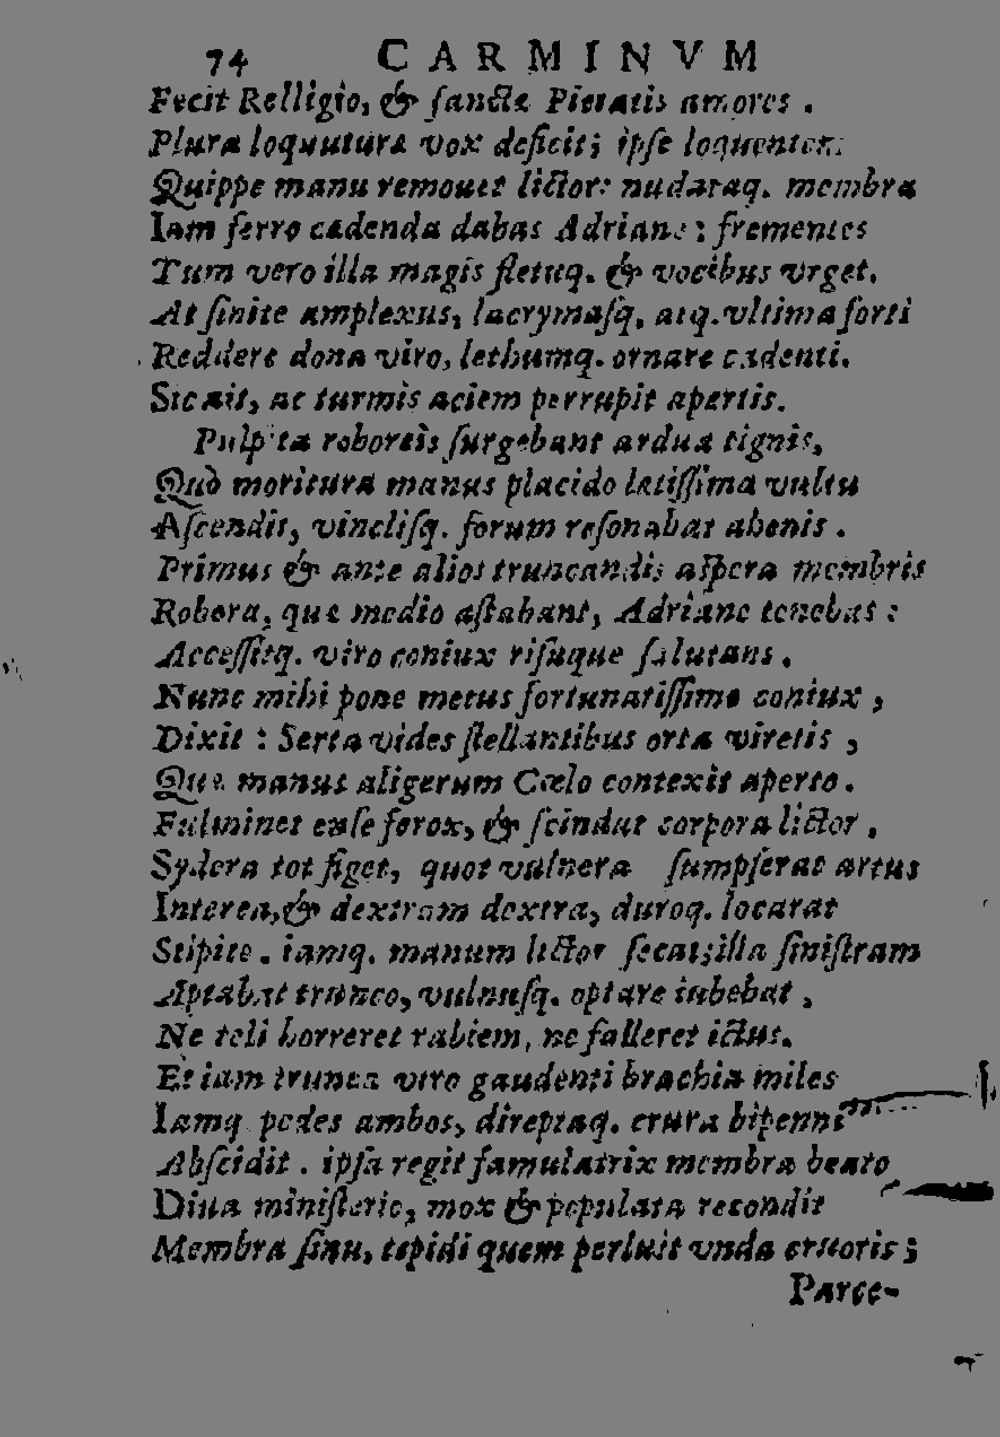 74 CARMINVM
Fecit Relligio, & ſanctæ Pietatis amores.
Plura loquutura vox deficit; ipſe loquentem
Quippe manu remouet lictor: nudataq. membra
Iam ferro cædenda dabas Adriane: frementes
Tum vero illa magis fletuq. & vocibus vrget.
At ſinite amplexus, lacrymaſq. atq. vltima forti
Reddere dona viro, lethumq. ornare cadenti.
Sic ait, ac turmis aciem perrupit apertis.
Pulpita roboreis ſurgebant ardua tignis,
Quò moritura manus placido lætiſſima vultu
Aſcendit, vincliſq. forum reſonabat ahenis.
Primus & ante alios truncandis aſpera membris
Robora, quæ medio aſtabant, Adriane tenebas:
Acceſſitq. viro coniux riſuque ſalutans.
Nunc mihi pone metus fortunatiſſime coniux,
Dixit: Serta vides ſtellantibus orta viretis,
Quæ manus aligerum Cœlo contexit aperto.
Fulminet enſe ferox, & ſcindat corpora lictor,
Sydera tot figet, quot vulnera ſumpſerat artus
Interea, & dextram dextra, duroq. locarat
Stipite. iamq. manum lictor ſecat; illa ſiniſtram
Aptabat trunco, vulnuſq. optare iubebat,
Ne teli horreret rabiem, ne falleret ictus.
Et iam trunca viro gaudenti brachia miles
Iamq. pedes ambos, direptaq. crura bipenni
Abſcidit. ipſa regit famulatrix membra beato
Diua miniſterio, mox & populata recondit
Membra ſinu, tepidi quem perluit vnda cruoris;
Parce-